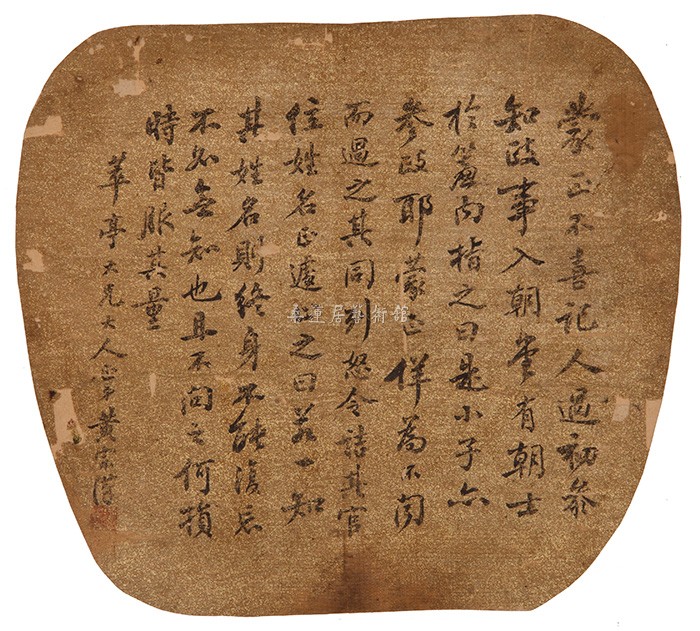 蒙正不喜記人過初參
知政事入朝堂有朝士
於簾內指之曰是小子亦
參政耶蒙正佯爲不聞
而過之其同列怒令詰其官
位姓名正遽止之曰若一知
其姓名則終身不能復忘
不如無知也且不問之何損
時皆服其量
華亭大兄大人正 黃宗漢
嘉重居藝術館